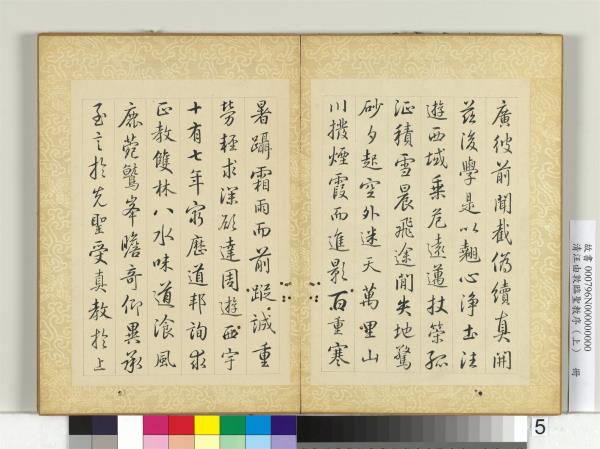 廣彼前聞截偽續真開
茲後學是以翹心淨土法
遊西域乘危遠邁杖策孤
征積雪晨飛途閒失地驚
砂夕起空外迷天萬里山
川撥煙霞而進影百重寒
暑躡霜雨而前蹤誠重
勞輕求深願達周遊西宇
十有七年窮歷道邦詢求
正教雙林八水味道飡風
鹿菀鷲峯瞻奇仰異承
至言於先聖受真教於上
故書 000796N000000000
清汪由敦臨聖教序(上) 冊
5